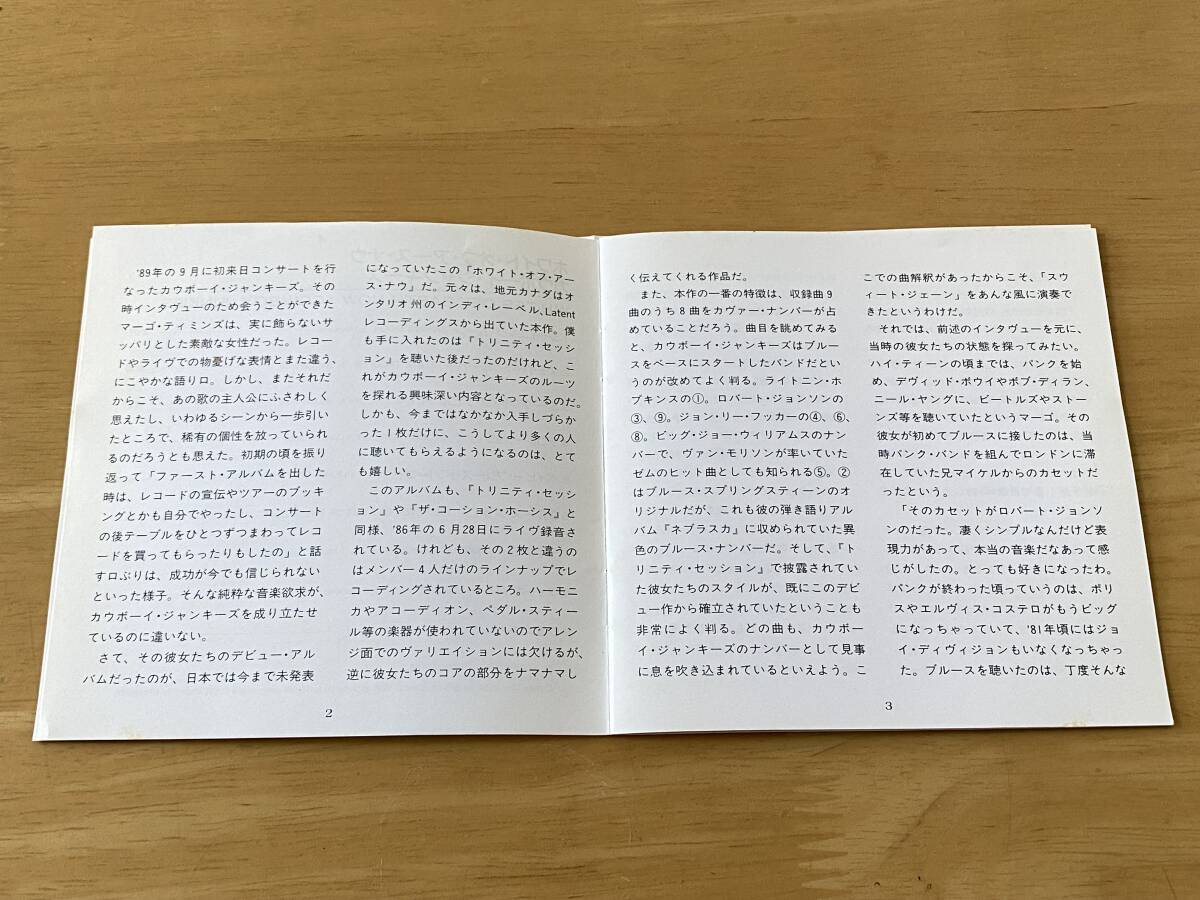 '89年の9月に初来日コンサートを行
なったカウボーイ・ジャンキーズ。その
時インタヴューのため会うことができた
マーゴ・ティミンズは、実に飾らないサ
ッパリとした素敵な女性だった。レコー
ドやライヴでの物憂げな表情とまた違う、
にこやかな語り口。しかし、またそれだ
からこそ、あの歌の主人公にふさわしく
思えたし、いわゆるシーンから一歩引い
たところで、稀有の個性を放っていられ
るのだろうとも思えた。初期の頃を振り
返って「ファースト・アルバムを出した
時は、レコードの宣伝やツアーのブッキ
ングとかも自分でやったし、コンサート
の後テーブルをひとつずつまわってレコ
ードを買ってもらったりもしたの」と話
す口ぶりは、成功が今でも信じられない
といった様子。そんな純粋な音楽欲求が、
カウボーイ・ジャンキーズを成り立たせ
ているのに違いない。
さて、その彼女たちのデビュー・アル
バムだったのが、日本では今まで未発表
になっていたこの「ホワイト・オフ・アー
ス・ナウ」だ。元々は、地元カナダはオ
ンタリオ州のインディ・レーベル、Latent
レコーディングスから出ていた本作。僕
も手に入れたのは「トリニティ・セッシ
ョン」を聴いた後だったのだけれど、こ
れがカウボーイ・ジャンキーズのルーツ
を探れる興味深い内容となっているのだ。
しかも、今まではなかなか入手しづらか
った1枚だけに、こうしてより多くの人
に聴いてもらえるようになるのは、とて
も嬉しい。
このアルバムも、「トリニティ・セッシ
ョン」や「ザ・コーション・ホーシス」と
同様、'86年の6月28日にライヴ録音さ
れている。けれども、その2枚と違うの
はメンバー4人だけのラインナップでレ
コーディングされているところ。ハーモニ
カやアコーディオン、ペダル・スティー
ル等の楽器が使われていないのでアレン
ジ面でのヴァリエイションには欠けるが、
逆に彼女たちのコアの部分をナマナマし
2
く伝えてくれる作品だ。
また、本作の一番の特徴は、収録曲9
曲のうち8曲をカヴァー・ナンバーが占
めていることだろう。曲目を眺めてみる
と、カウボーイ・ジャンキーズはブルー
スをベースにスタートしたバンドだとい
うのが改めてよく判る。ライトニン・ホ
プキンスの①。ロバート・ジョンソンの
③、⑨。ジョン・リー・フッカーの④、⑥、
⑧。ビッグ・ジョー・ウィリアムスのナン
バーで、ヴァン・モリソンが率いていた
ゼムのヒット曲としても知られる⑤。②
はブルース・スプリングスティーンのオ
リジナルだが、これも彼の弾き語りアル
バム『ネブラスカ』に収められていた異
色のブルース・ナンバーだ。そして、「ト
リニティ・セッション」で披露されてい
た彼女たちのスタイルが、既にこのデビ
ュー作から確立されていたということも
非常によく判る。どの曲も、カウボー
イ・ジャンキーズのナンバーとして見事
に息を吹き込まれているといえよう。こ
こでの曲解釈があったからこそ、「スウ
ィート・ジェーン」をあんな風に演奏で
きたというわけだ。
それでは、前述のインタヴューを元に、
当時の彼女たちの状態を探ってみたい。
ハイ・ティーンの頃までは、パンクを始
め、デヴィッド・ボウイやボブ・ディラン、
ニール・ヤングに、ビートルズやストー
ンズ等を聴いていたというマーゴ。その
彼女が初めてブルースに接したのは、当
時パンク・バンドを組んでロンドンに滞
在していた兄マイケルからのカセットだ
ったという。
「そのカセットがロバート・ジョンソ
ンのだった。凄くシンプルなんだけど表
現力があって、本当の音楽だなあって感
じがしたの。とっても好きになったわ。
パンクが終わった頃っていうのは、ポリ
スやエルヴィス・コステロがもうビッグ
になっちゃっていて、'81年頃にはジョ
イ・ディヴィジョンもいなくなっちゃっ
た。ブルースを聴いたのは、丁度そんな
3